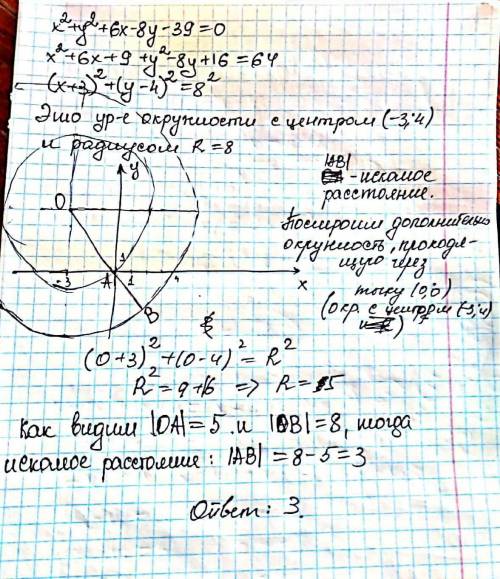 x²+y²+6x-8y-39=0
x²+6x+9+y²-8y+16=64
(x+3)²+(y-4)²=8²
Это ур-е окружности с центром (-3;4)
и радиусом R=8
|AB|
-искомое
расстояние.
Построим дополнительно
окружность, проходя-
щую через
точку (0;0)
(окр. с центром (-3;4)
)
y
O
1
-3
A
1
4
x
B
(0+3)²+(0-4)²=R²
R²=9+16 => R=5
Как видим |OA|=5 и |OB|=8, тогда
искомое расстояние: |AB|=8-5=3
Ответ: 3.